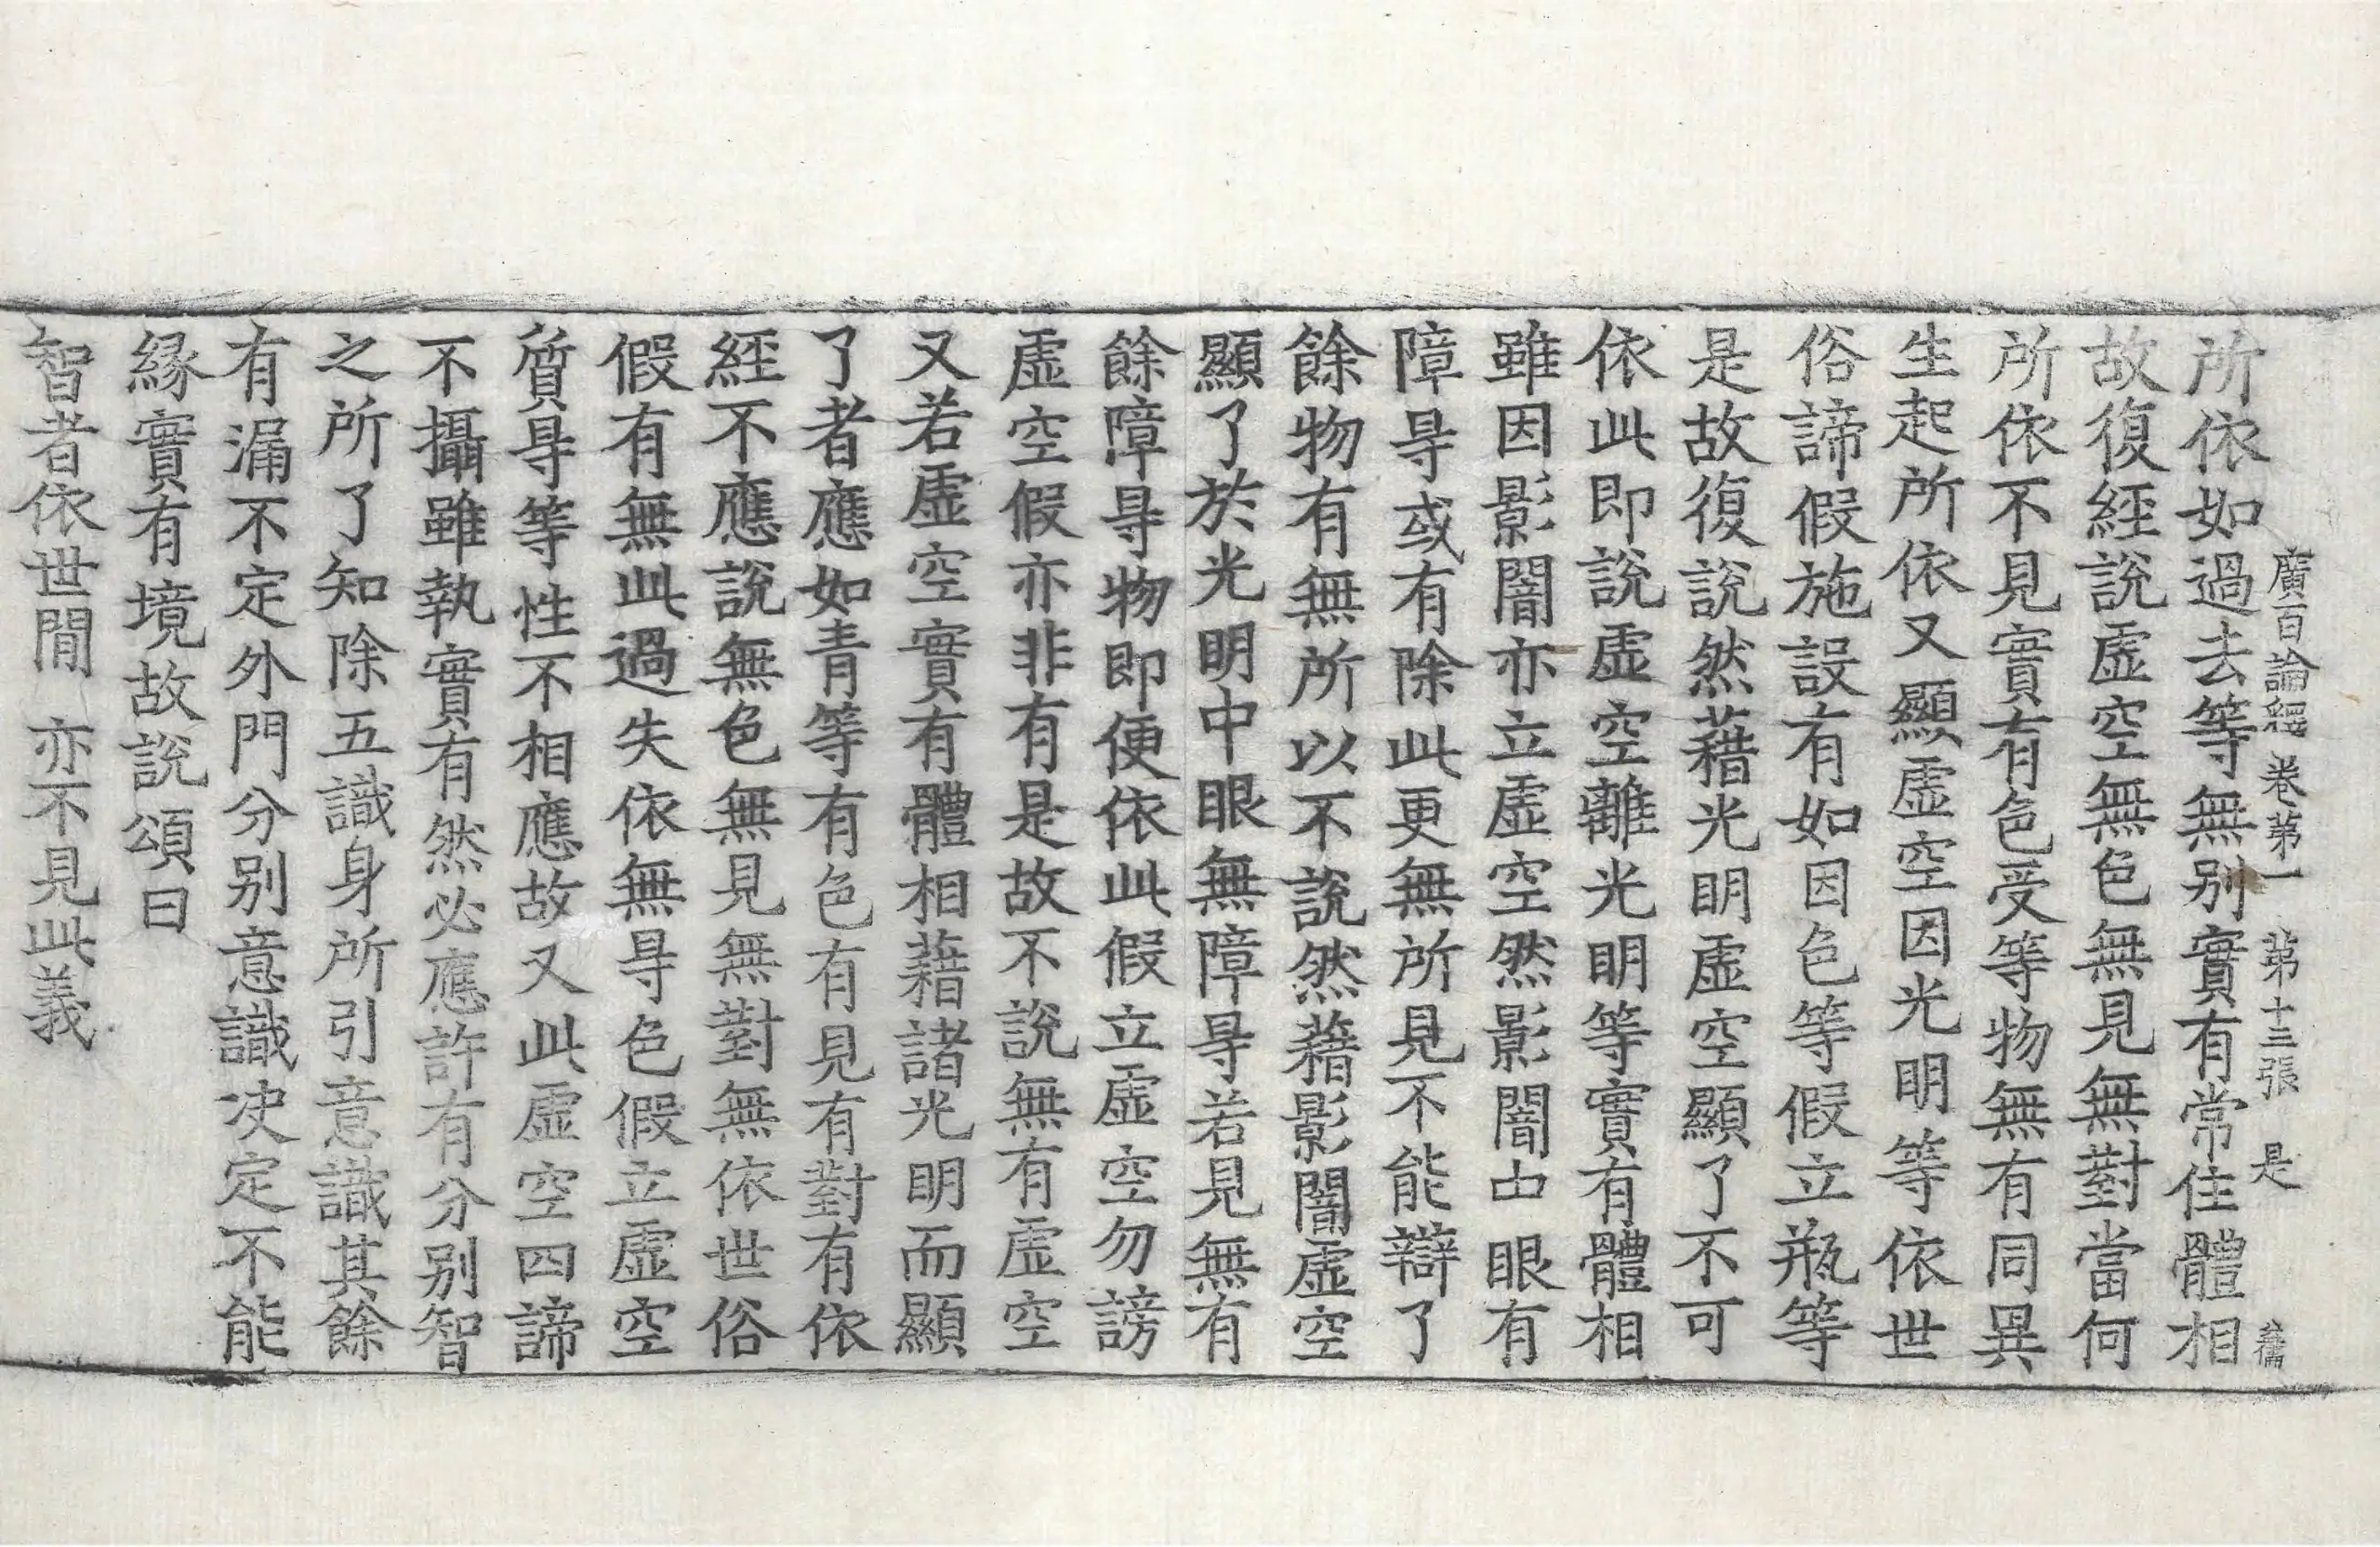 廣百論經 卷第一 第十三張 是
所依如過去等無別實有常住體相
故復經說虛空無色無見無對當何
所依不見實有色受等物無有同異
生起所依又顯虛空因光明等依世
俗諦假施設有如因色等假立瓶等
是故復說然藉光明虛空顯了不可
依此即說虛空離光明等實有體相
雖因影闇亦立虛空然影闇中眼有
障㝵或有除此更無所見不能辯了
餘物有無所以不說然藉影闇虛空
顯了於光明中眼無障㝵若見無有
餘障㝵物即便依此假立虛空勿謗
虛空假亦非有是故不說無有虛空
又若虛空實有體相藉諸光明而顯
了者應如青等有色有見有對有依
經不應說無色無見無對無依世俗
假有無此過失依無㝵色假立虛空
質㝵等性不相應故又此虛空四諦
不攝雖執實有然必應許有分別智
之所了知除五識身所引意識其餘
有漏不定外門分別意識決定不能
緣實有境故說頌曰
智者依世間 亦不見此義